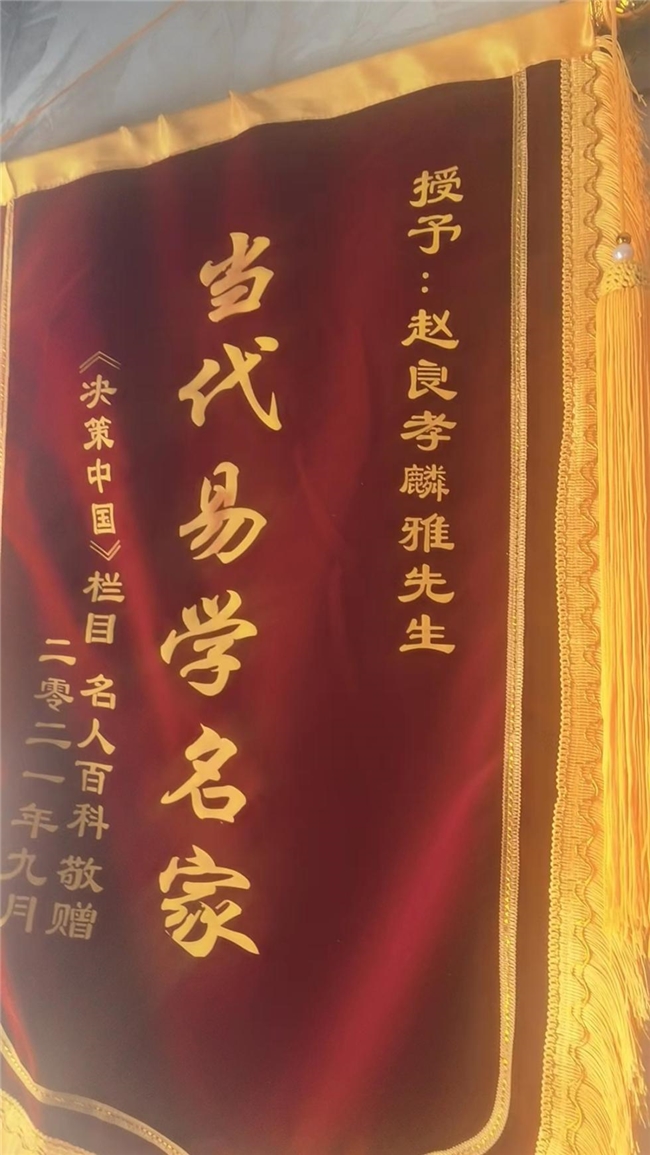 授予：赵良孝麟雅先生
当代易学名家
《决策中国》栏目 名人百科 敬赠
二零二一年九月